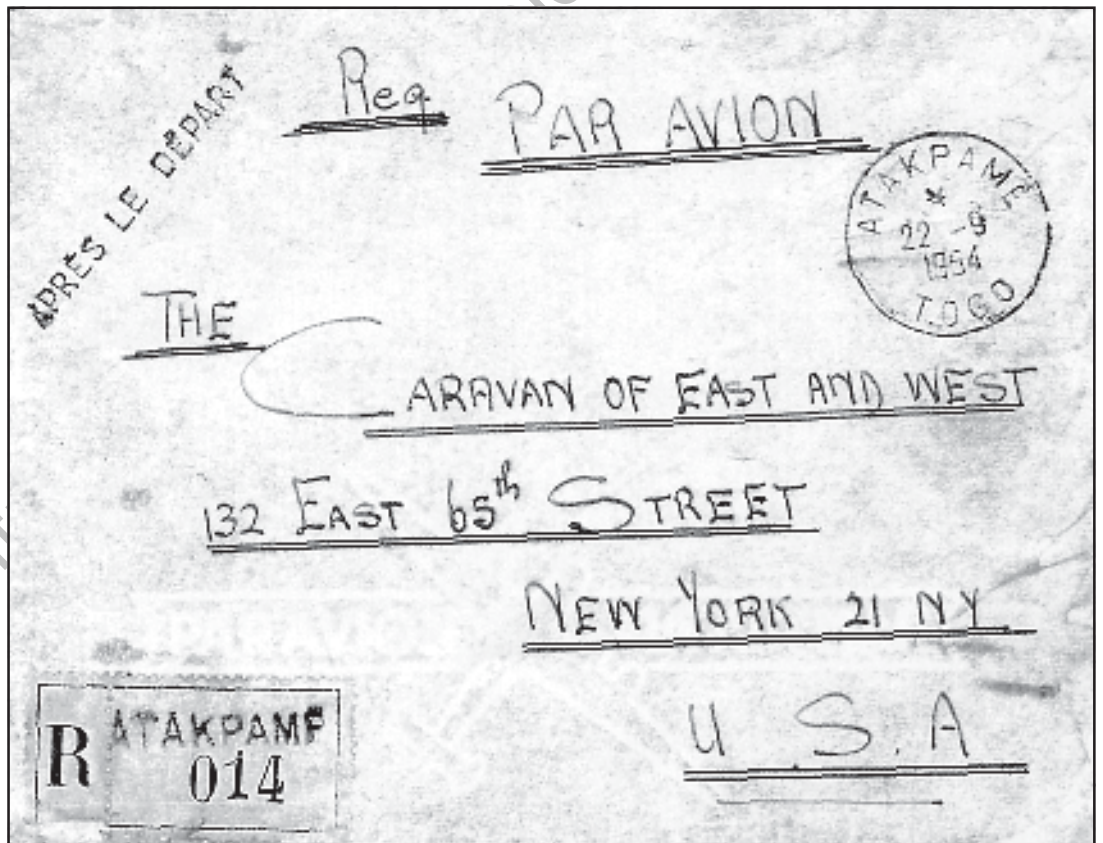 APRÈS LE DÉPART
Reg PAR AVION
ATAKPAMÉ
*
22 -9
1954
TOGO
THE
CARAVAN OF EAST AND WEST
132 EAST 65th STREET
NEW YORK 21 NY
U S.A
R ATAKPAME
014